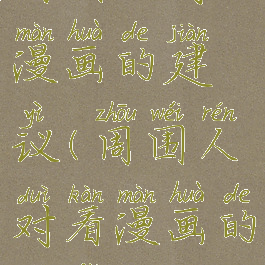 màn huà de jiàn
漫画的建
yì zhōu wéi rén
议(周围人
duì kàn màn huà de
对看漫画的